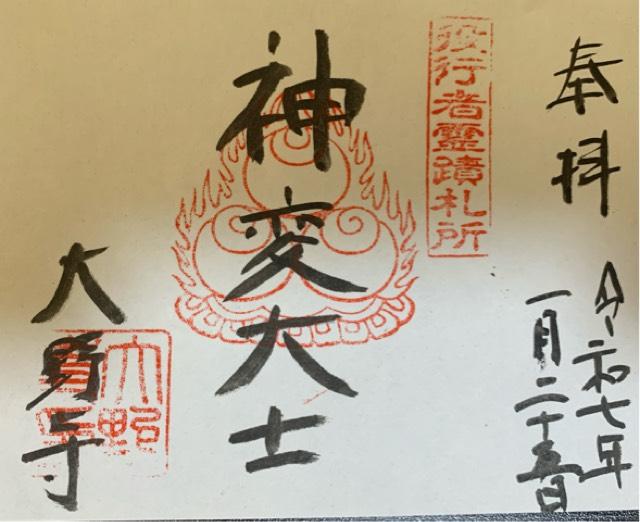 奉拝
令和七年
一月二十五日
役行者霊蹟札所
神変大士